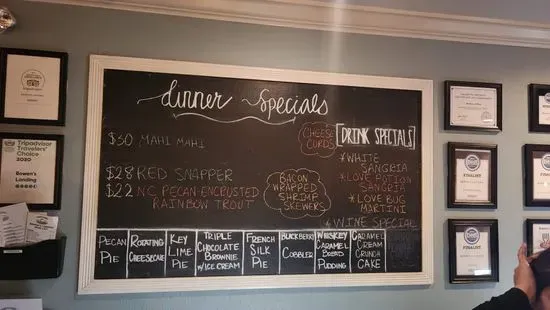 dinner Specials
$30 MAHI MAHI
$28 RED SNAPPER
$22 NC PECAN-ENCRUSTED
RAINBOW TROUT
CHEESE
CURDS
BACON
WRAPPED
SHRIMP
SKEWERS
DRINK SPECIALS
*WHITE
SANGRIA
*LOVE POTION
SANGRIA
*LOVE BUG
MARTINI
*WINE SPECIAL
PECAN
PIE
ROTATING
CHEESECAKE
KEY
LIME
PIE
TRIPLE
CHOCOLATE
BROWNIE
W/ICE CREAM
FRENCH
SILK
PIE
BLACKBERRY
COBBLER
WHISKEY
CARAMEL
BREAD
PUDDING
CARAMEL
CREAM
CRUNCH
CAKE
Tripadvisor
Travelers'
Choice
2020
Bowen's
Landing
FINALIST
FINALIST